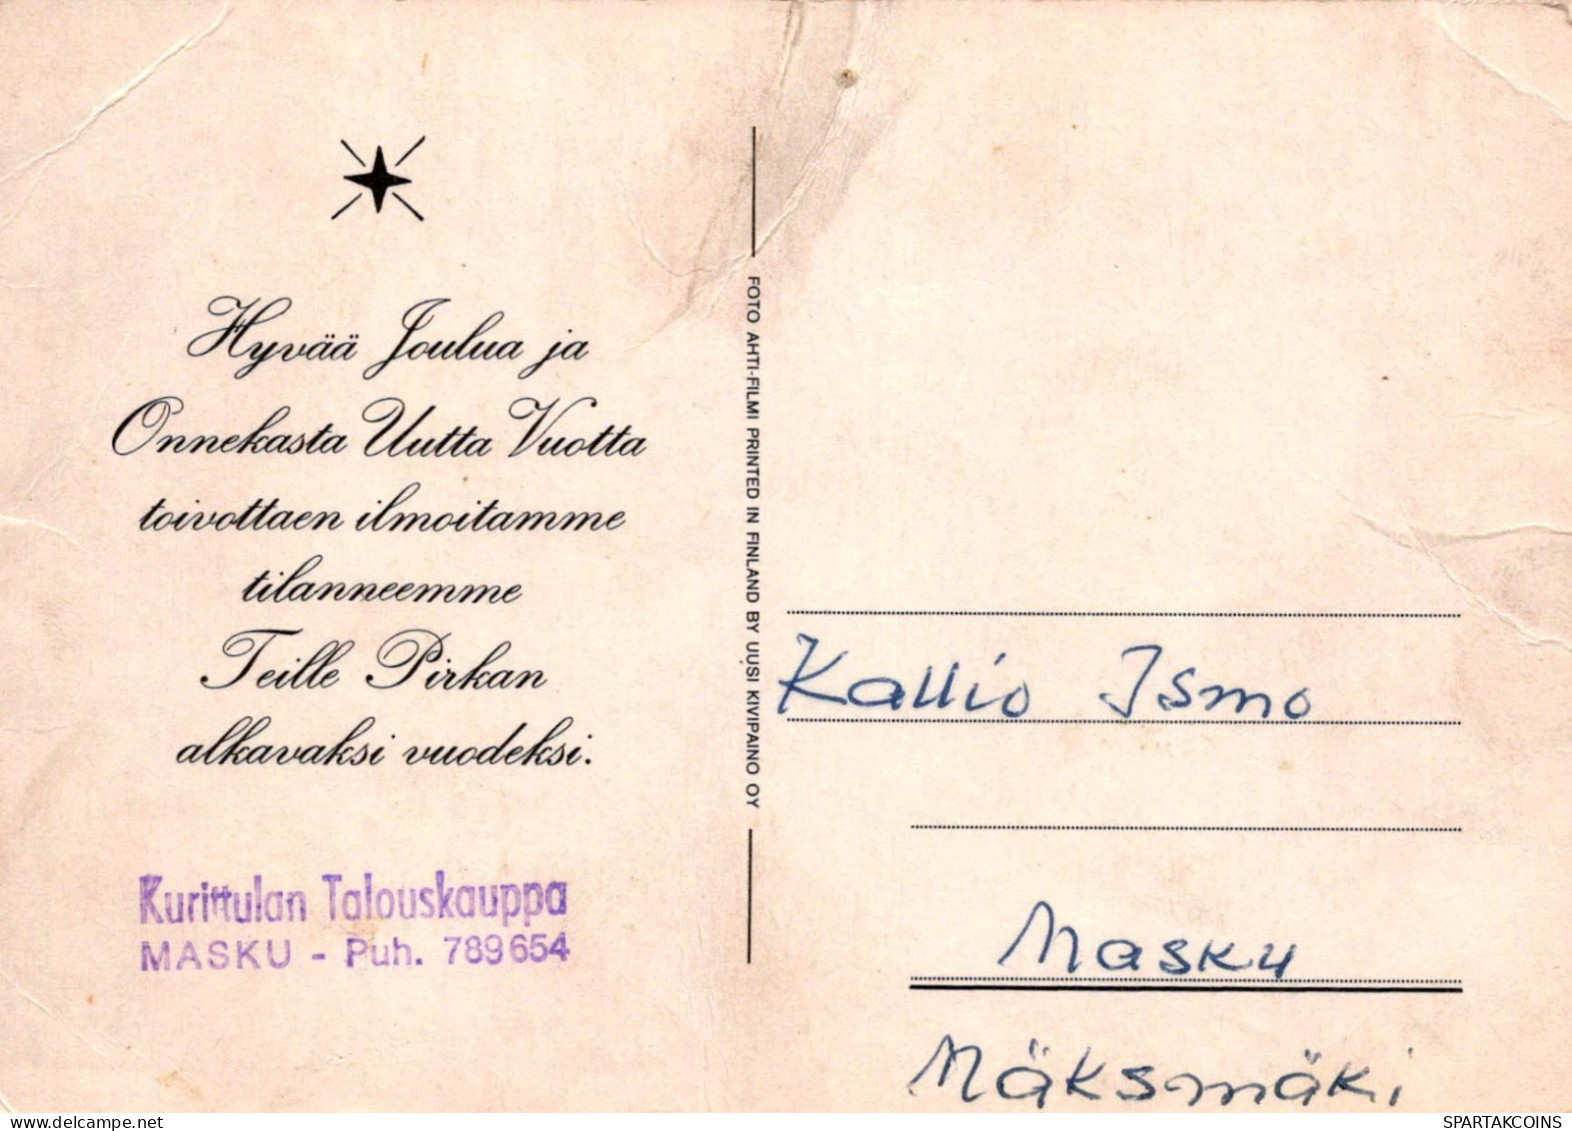 Hyvää Joulua ja
Onnekasta Uutta Vuotta
toivottaen ilmoitamme
tilanneemme
Teille Pirkan
alkavaksi vuodeksi.
Kurittulan Talouskauppa
MASKU - Puh. 789654
FOTO AHTI-FILMI PRINTED IN FINLAND BY UUSI KIVIPAINO OY
Kallio Ismo
Masku
Mäksmäki
www.delcampe.net
SPARTAKCOINS